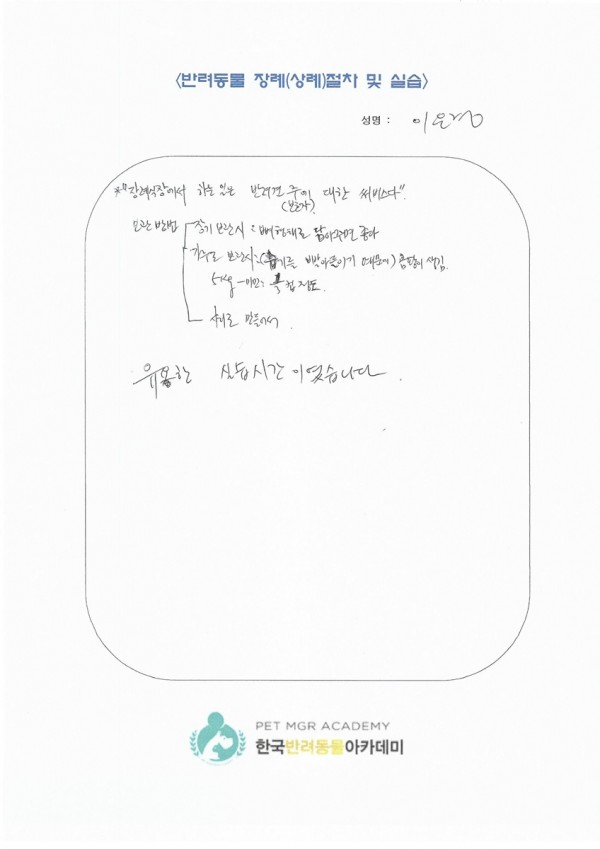 <반려동물 장례(상례)절차 및 실습>
성명 : 이은정
*"장례식장에서 하는 일은 반려견 주인 대한 써비스다".
(보호자)
보관 방법
장기 보관시 : 뼈형태로 담아두면 좋아
가루로 보관시 : (습기를 빨아들이기 때문에) 곰팡이 생김.
5kg 미만 : 컵 정도
사리로 만들어서
유용한 실습시간 이였습니다.
PET MGR ACADEMY
한국반려동물아카데미